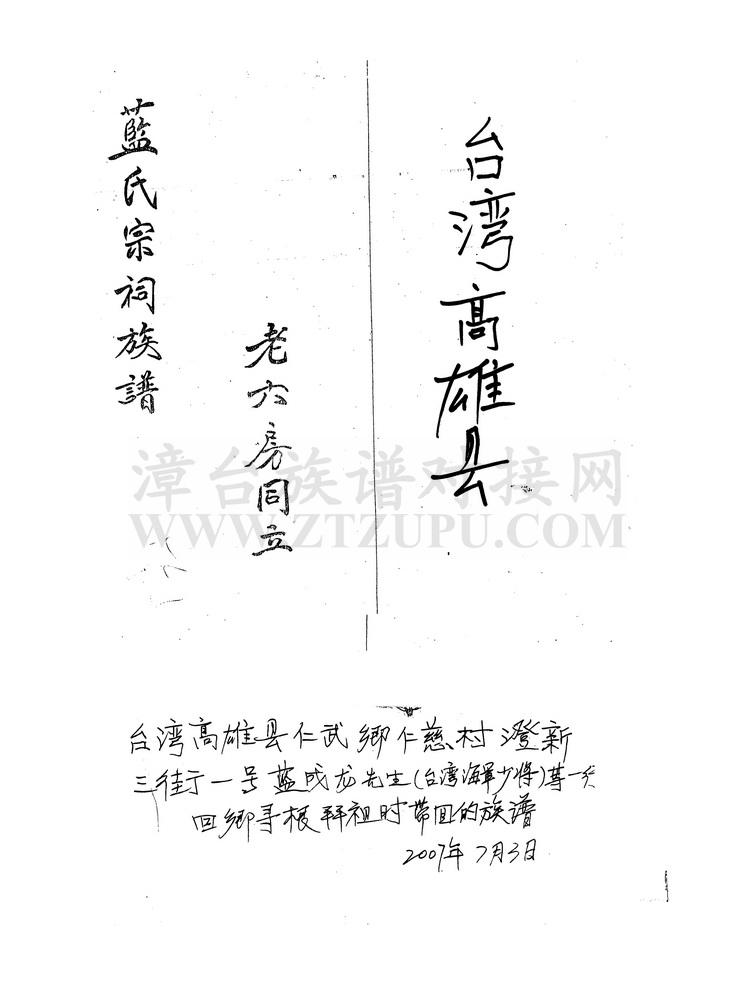 台湾高雄县
老六房同立
藍氏宗祠族譜
漳台族谱对接网
WWW.ZTZUPU.COM
台湾高雄县仁武鄉仁慈村澄新
三街一号蓝成龙先生(台湾海軍少將)等一
回鄉寻根拜祖时带回的族谱
2007年7月3日